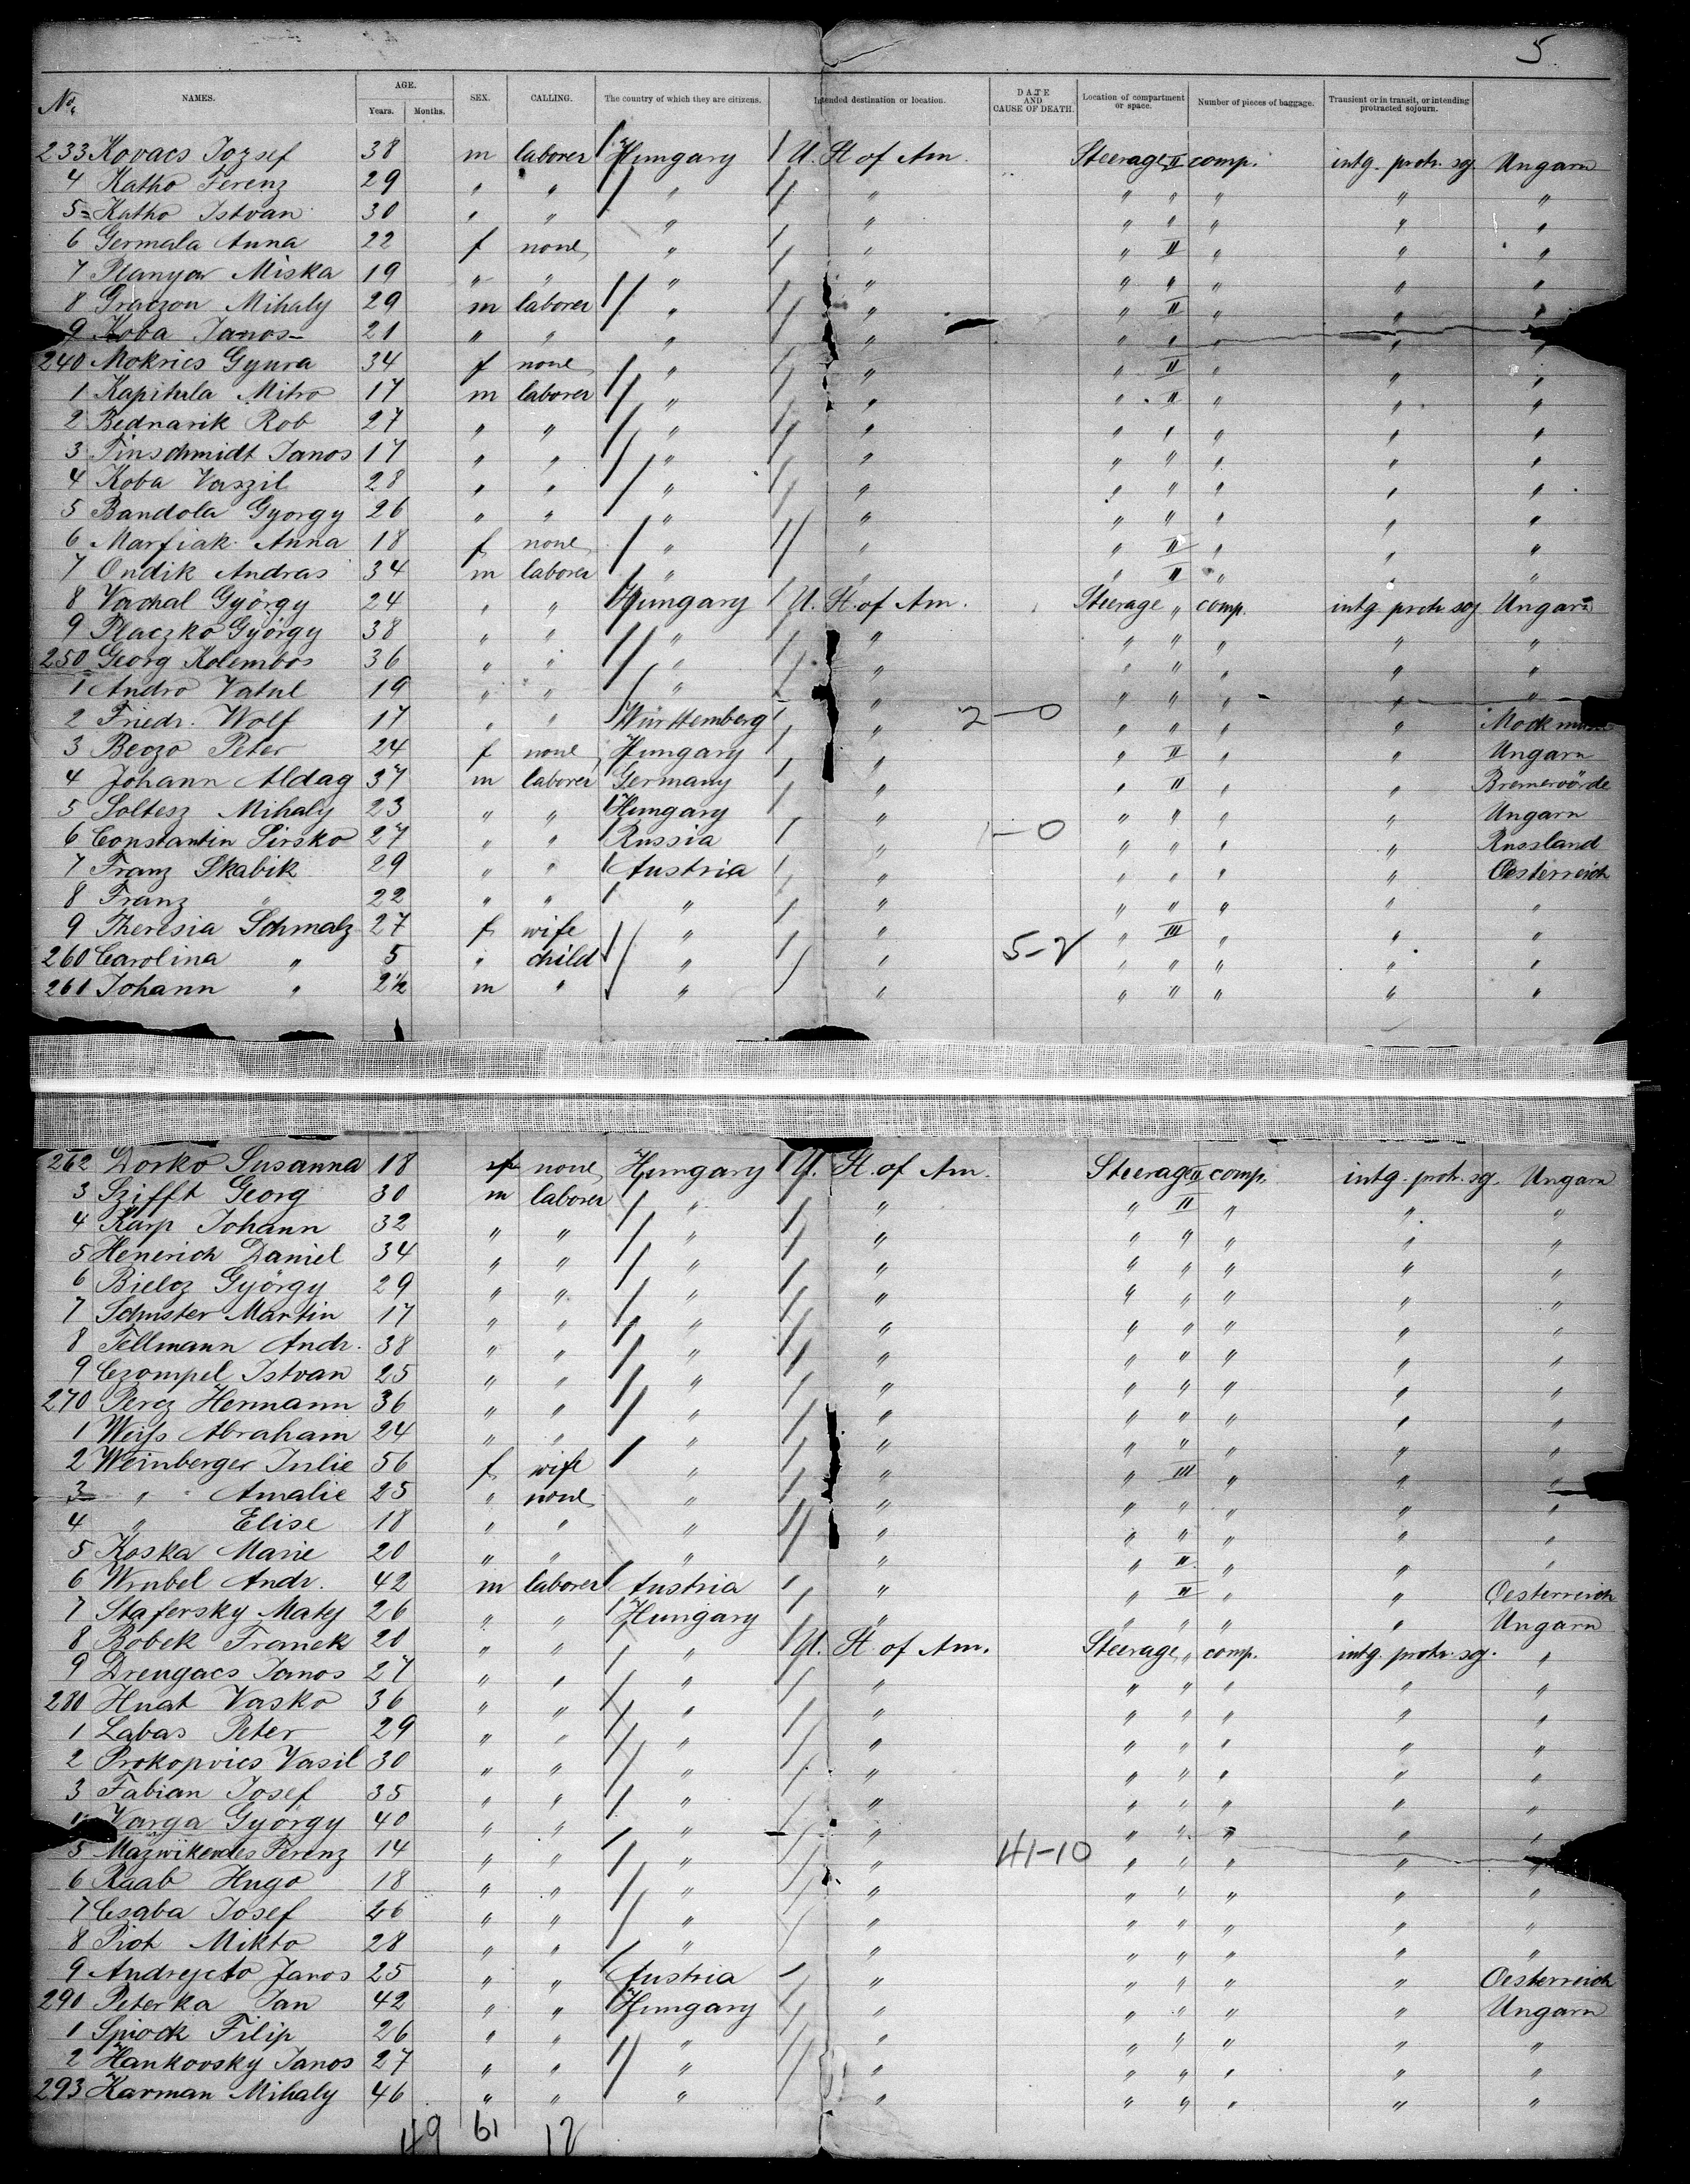 5
No. NAMES. AGE. Years. Months. SEX. CALLING. The country of which they are citizens. Intended destination or location. DATE AND CAUSE OF DEATH. Location of compartment or space. Number of pieces of baggage. Transient or in transit, or intending protracted sojourn.
233 Kovacs Jozsef 38 m laborer Hungary U. St. of Am. Steerage II comp. intg. protr. sg. Ungarn
4 Katho Ferenz 29 " " " " " " " " "
5 Katho Istvan 30 " " " " " " " " "
6 Germala Anna 22 f none " " " II " " "
7 Planyar Miska 19 " " " " " " " " "
8 Graczon Mihaly 29 m laborer " " " II " " "
9 Koba Janos 21 " " " " " " " " "
240 Mokrics Gyura 34 f none " " " II " " "
1 Kapitula Mitro 17 m laborer " " " II " " "
2 Bednarik Rob 27 " " " " " " " " "
3 Tinschmidt Janos 17 " " " " " " " " "
4 Koba Vaszil 28 " " " " " " " " "
5 Bandola Gyorgy 26 " " " " " " " " "
6 Marfiak Anna 18 f none " " " II " " "
7 Ondik Andras 34 m laborer " " " II " " "
8 Vachal György 24 " " Hungary U. St. of Am. Steerage " comp. intg. protr. sg Ungarn
9 Placzko György 38 " " " " " " " " "
250 Georg Kolembos 36 " " " " " " " " "
1 Andro Vatul 19 " " " " " " " " "
2 Friedr. Wolf 17 " " Württemberg " 2-0 " " " "
3 Beczo Peter 24 f none Hungary " " II " " Ungarn
4 Johann Aldag 37 m laborer Germany " " II " " Bremervörde
5 Soltesz Mihaly 23 " " Hungary " " " " " Ungarn
6 Constantin Sirsko 27 " " Russia " 1-0 " " " " Russland
7 Franz Skabik 29 " " Austria " " " " " Oesterreich
8 Franz " 22 " " " " " " " " "
9 Theresia Schmalz 27 f wife " " " III " " "
260 Carolina " 5 " child " " 5-2 " " " " "
261 Johann " 2½ m " " " " " " " "
262 Dorko Susanna 18 f none Hungary U. St. of Am. Steerage II comp. intg. protr. sg. Ungarn
3 Szifft Georg 30 m laborer " " " II " " "
4 Karp Johann 32 " " " " " " " " "
5 Henerich Daniel 34 " " " " " " " " "
6 Bielcz György 29 " " " " " " " " "
7 Schuster Martin 17 " " " " " " " " "
8 Tellmann Andr. 38 " " " " " " " " "
9 Czompel Istvan 25 " " " " " " " " "
270 Percz Hermann 36 " " " " " " " " "
1 Weiss Abraham 24 " " " " " " " " "
2 Weinberger Julie 56 f wife " " " III " " "
3 " Amalie 25 " none " " " " " " "
4 " Elise 18 " " " " " " " " "
5 Koska Marie 20 " " " " " II " " "
6 Wrubel Andr. 42 m laborer Austria " " II " " Oesterreich
7 Stafersky Matej 26 " " Hungary " " " " " Ungarn
8 Bobek Franek 20 " " " U. St. of Am. Steerage " comp. intg. protr. sg. "
9 Drengacs Janos 27 " " " " " " " " "
280 Hnat Vasko 36 " " " " " " " " "
1 Labas Peter 29 " " " " " " " " "
2 Prokopvics Vasil 30 " " " " " " " " "
3 Fabian Josef 35 " " " " " " " " "
4 Varga György 40 " " " " " " " " "
5 Ferenz 14 " " " " 41-10 " " " " "
6 Raab Hugo 18 " " " " " " " " "
7 Csaba Josef 26 " " " " " " " " "
8 Piot Mikto 28 " " " " " " " " "
9 Andrejcto Janos 25 " " Austria " " " " " Oesterreich
290 Peterka Jan 42 " " Hungary " " " " " Ungarn
1 Spiock Filip 26 " " " " " " " " "
2 Hankovsky Janos 27 " " " " " " " " "
293 Karman Mihaly 46 " " " " " " " " "
49 61 12